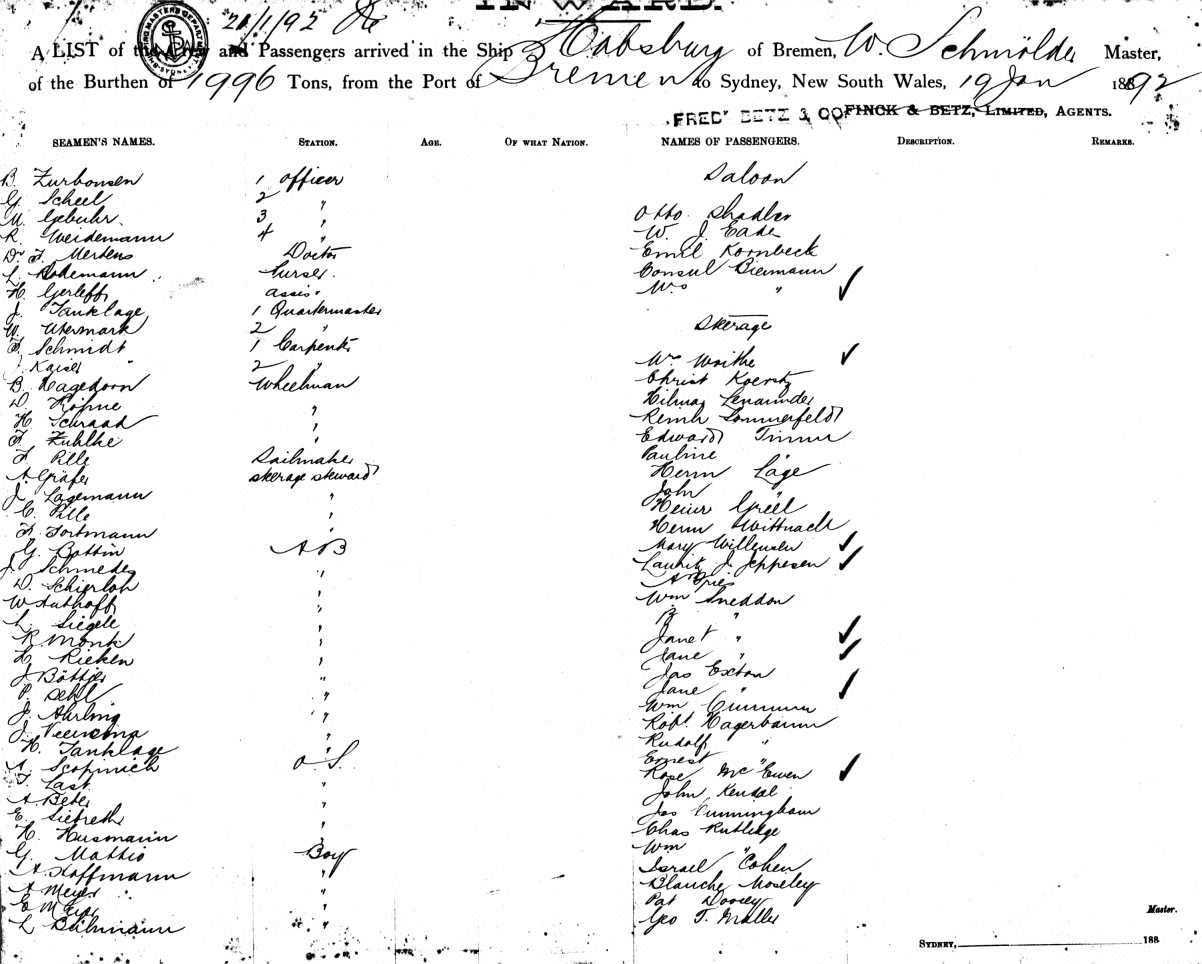 INWARD.
21/1/92
A LIST of the Crew and Passengers arrived in the Ship Habsburg of Bremen, W. Schmölder Master,
of the Burthen of 1996 Tons, from the Port of Bremen to Sydney, New South Wales, 19 Jan 1892
FREDK BETZ & CO FINCK & BETZ, LIMITED, AGENTS.
SEAMEN'S NAMES. STATION. AGE. OF WHAT NATION. NAMES OF PASSENGERS. DESCRIPTION. REMARKS.
B. Zurbonsen 1 Officer Saloon
G. Scheel 2 "
M. Gebuhr 3 " Otto
R. Weidemann 4 " W. J. Eade
Dr F. Mertens Doctor Emil Kornbeck
L. Purser Consul Biermann
H. Gerleff assis Mrs " ✓
J. Tanklage 1 Quartermaster
W. Utermark 2 " Steerage
F. Schmidt 1 Carpenter
J. Kaiser 2 " Mrs Woithe ✓
B. Hagedorn Wheelman Christ
D. Höhne " Hilmar
H. Schraad " Reinh Sommerfeldt
F. Zuhlke " Edward Timm
F. Pille Sailmaker Pauline "
A Gräfer Steerage steward Herm Läge
J. Lagemann " John "
C. Pille " Heinr Greel
F. Fortmann " Herm Wittnach
G. Bottin AB Mary Willensen ✓
J. Schmedes " Lauritz J. Jeppesen ✓
D. Schierloh " A
W Authoff " Wm Sneddon
L. Siegele " "
R Monk " Janet " ✓
H. Rieken " Jane " ✓
J Böttjer " Jas Exton
P. Dehl " Jane " ✓
J. Ahrling " Wm
J. " Robt. Hagerbaum
H. Tanklage " Rudolf "
A. Scopinich O S. Ernest "
F. Last " Rose McEwen ✓
A Beter " John Kendal
E. Siefreth " Jas Cunningham
H. Husmann " Chas Rutlidge
G. Mattis Boy Wm "
A. Hoffmann " Israel Cohen
A Meyer " Blanche Moseley
E Meyer " Pat Dooley
L " Geo T. Muller
Master.
SYDNEY, 188